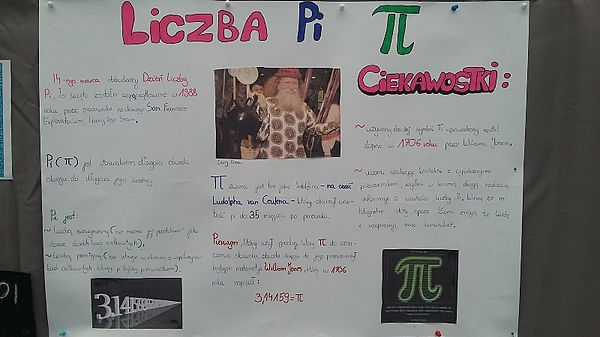 LICZBA Pi π
14-ego marca obchodzimy Dzień Liczby
Pi. To święto zostało zapoczątkowane w 1988
roku przez pracownika naukowego San Francisco
Exploratorium, Larry'ego Shaw.
Pi (π) jest stosunkiem długości obwodu
okręgu do długości jego średnicy.
Pi jest:
~ liczbą niewymierną (nie może jej przedstawić jako
iloraz dwóch liczb całkowitych),
~ liczbą przestępną (nie istnieje wielomian o współczynni-
kach całkowitych, którego π byłoby pierwiastkiem).
3,14
Larry Shaw
π zwana jest też jako ludolfina - na cześć
Ludolpha van Ceulena - który obliczył war-
tość pi do 35 miejsca po przecinku.
Pierwszym, który użył greckiej litery π do ozna-
czenia stosunku obwodu okręgu do jego średnicy był
matematyk William Jones, który w 1706
roku napisał:
3,14159 = π
CIEKAWOSTKI:
~ używany dzisiaj symbol π wprowadzony został
dopiero w 1706 roku przez Williama Jonesa.
~ uczeni szukając kontaktu z cywilizacjami
pozaziemskimi, wysłali w kosmos drogą radiową
informację o wartości liczby Pi. Wierzą, że in-
teligentne istoty spoza Ziemi znają tę liczbę
i rozpoznają nasz komunikat.
π